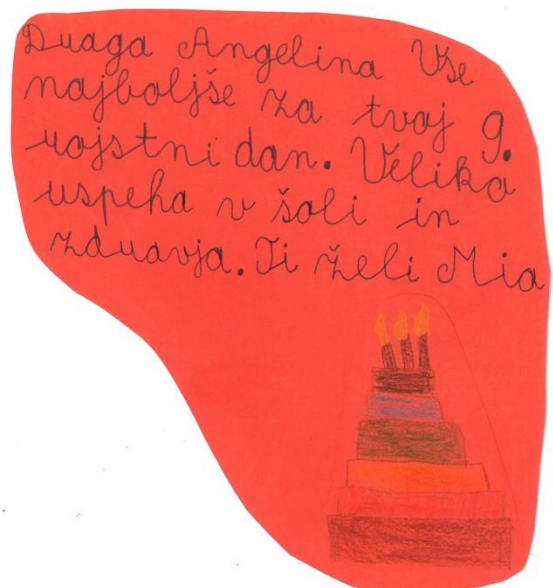 Draga Angelina Vse
najboljše za tvoj 9.
rojstni dan. Veliko
uspeha v šoli in
zdravja. Ti želi Mia